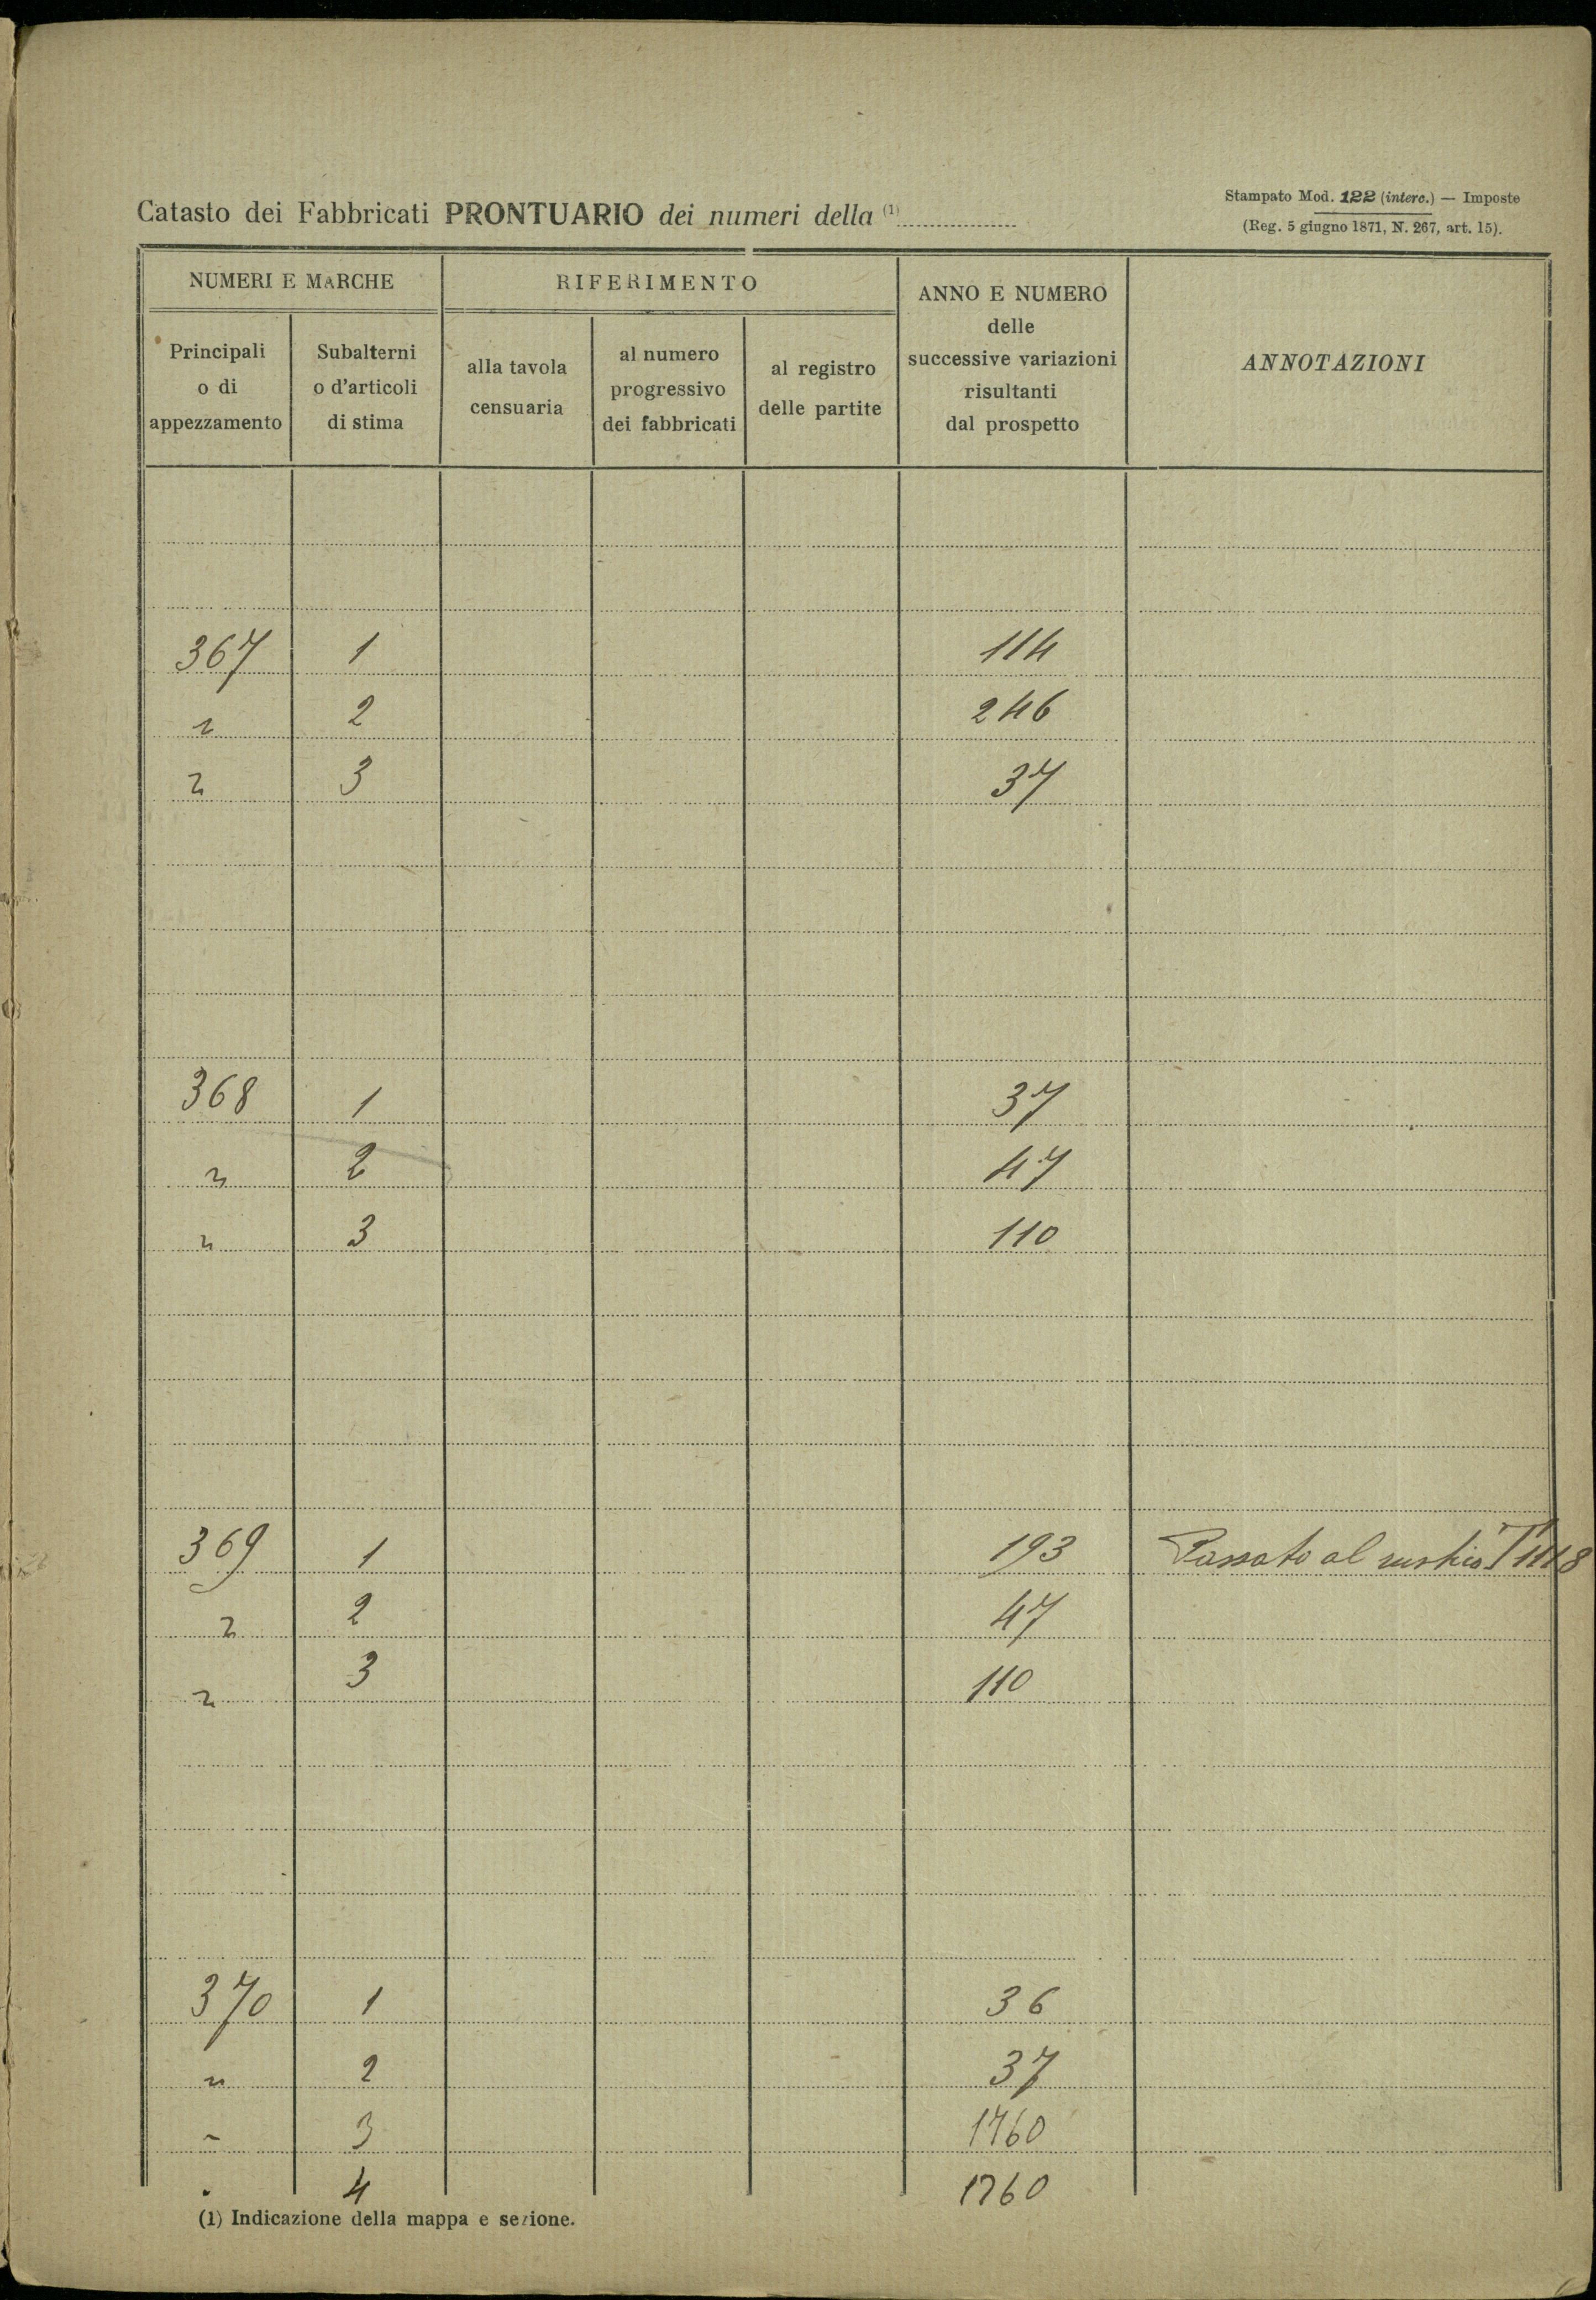 Catasto dei Fabbricati PRONTUARIO dei numeri della (1)
Stampato Mod. 122 (interc.) — Imposte
(Reg. 5 giugno 1871, N. 267, art. 15).
NUMERI E MARCHE
RIFERIMENTO
ANNO E NUMERO
delle
successive variazioni
risultanti
dal prospetto
ANNOTAZIONI
Principali
o di
appezzamento
Subalterni
o d'articoli
di stima
alla tavola
censuaria
al numero
progressivo
dei fabbricati
al registro
delle partite
367 1 114
" 2 246
" 3 37
368 1 37
" 2 47
" 3 110
369 1 193 Passato al rustico 1118
" 2 47
" 3 110
370 1 36
" 2 37
" 3 1760
" 4 1760
(1) Indicazione della mappa e sezione.